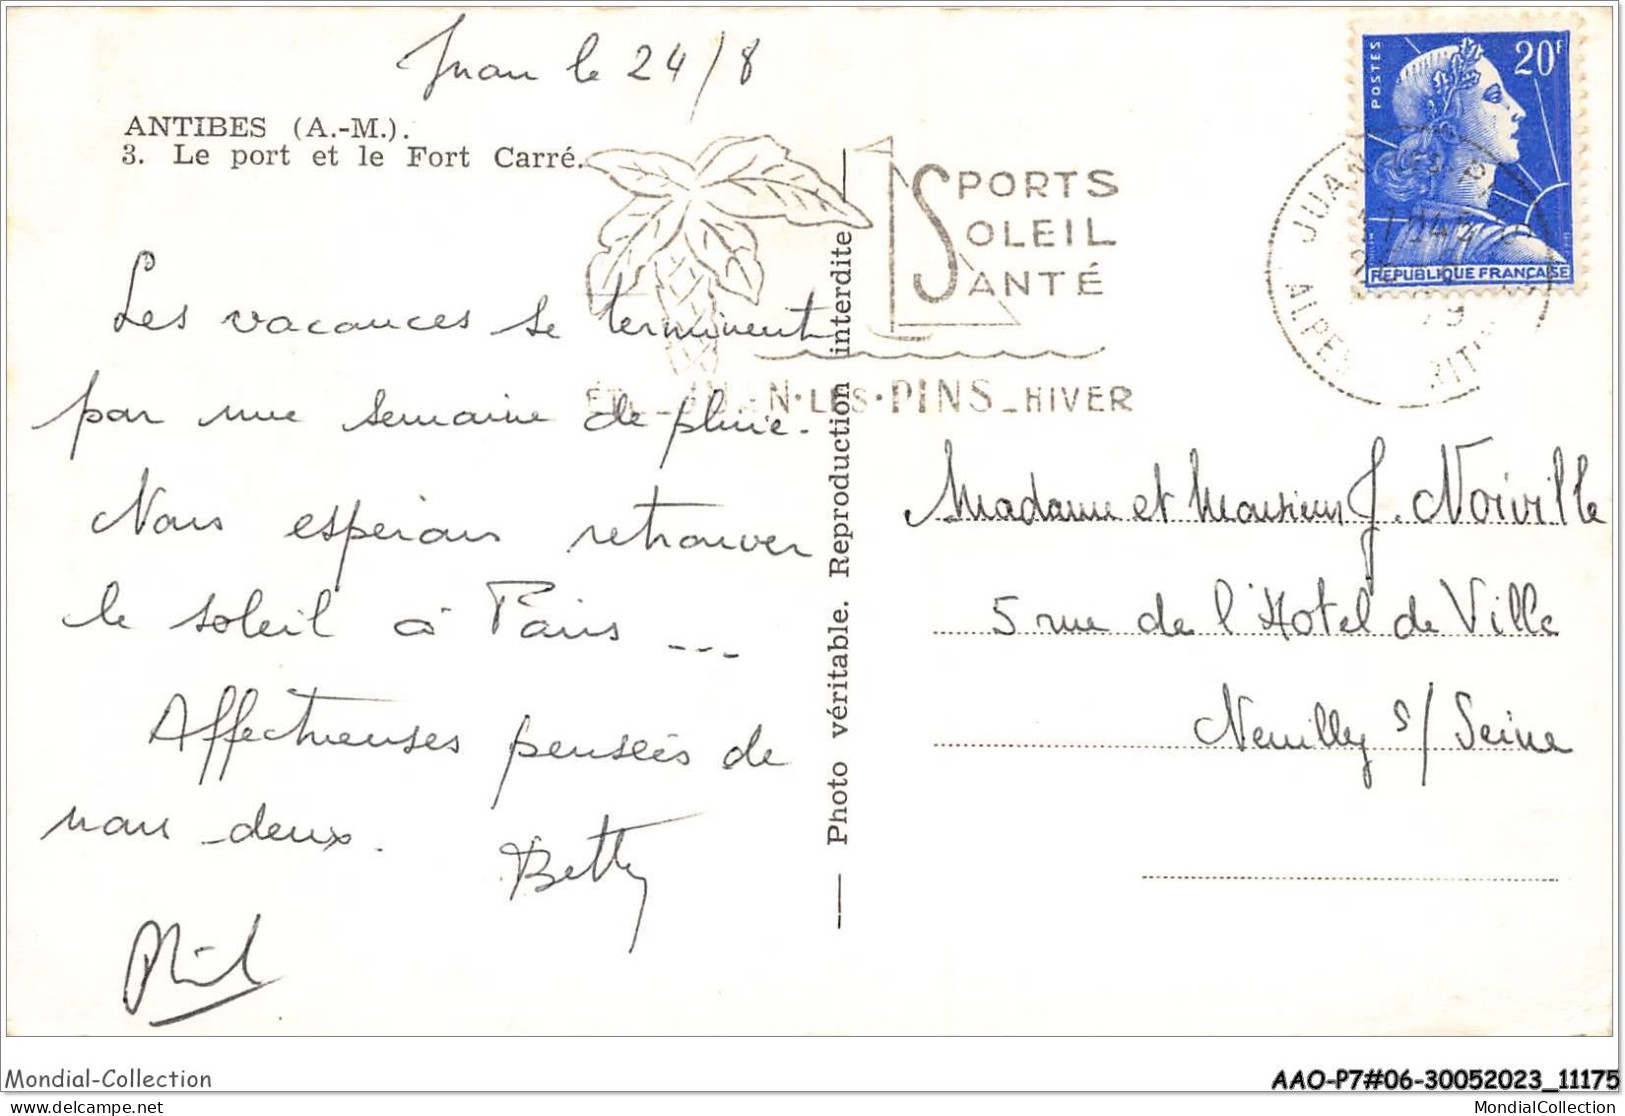 Juan le 24/8
ANTIBES (A.-M.).
3. Le port et le Fort Carré.
Les vacances se terminent
par une semaine de pluie.
Nous espérons retrouver
le soleil à Paris ---
Affectueuses pensées de
nous deux.
Betty
Photo véritable. Reproduction interdite
SPORTS
SOLEIL
SANTÉ
JUAN·LES·PINS_HIVER
POSTES
20F
REPUBLIQUE FRANÇAISE
JUAN LES PINS
ALPES
Madame et Monsieur J. Noiville
5 rue de l'Hotel de Ville
Neuilly s/ Seine
Mondial-Collection
AAO-P7#06-30052023_11175
delcampe.net
MondialCollection